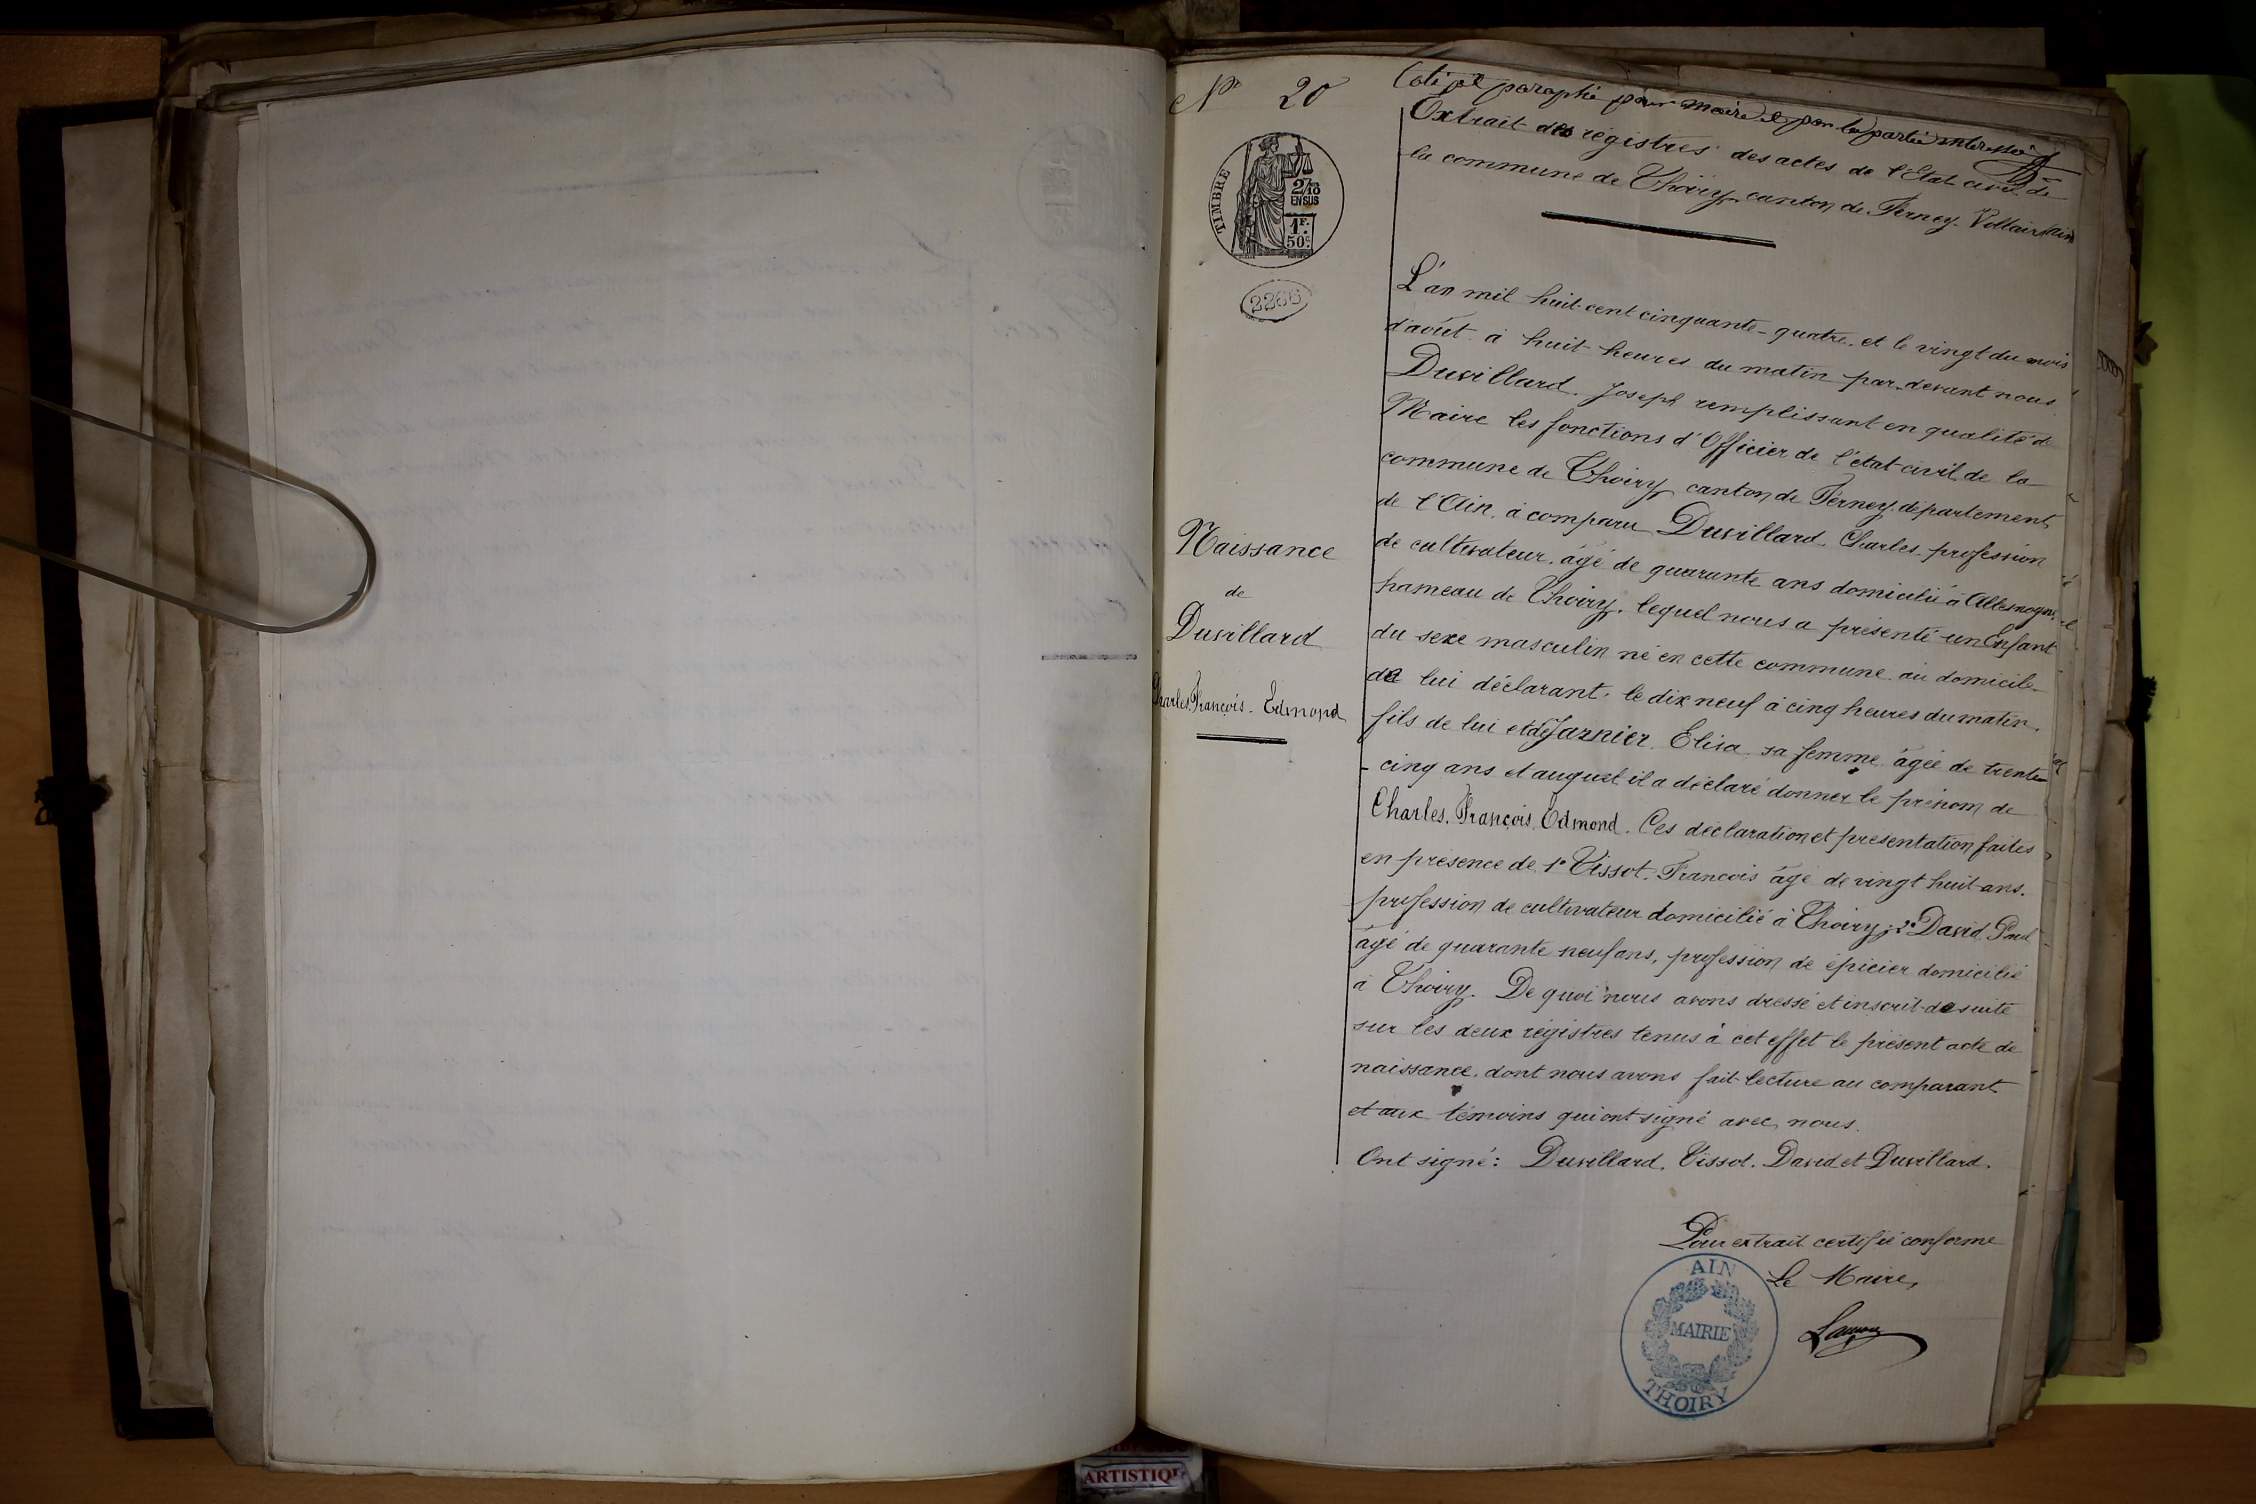 Nº 20
Coté et paraphé par maire et par la partie intéressée
Extrait des régistres des actes de l'Etat civil de
la commune de Thoiry, canton de Ferney-Voltaire (Ain)
TIMBRE
2/10
EN SUS
1F.
50c
2266
L'an mil huit cent cinquante-quatre et le vingt du mois
d'août à huit heures du matin par-devant nous
Duvillard Joseph remplissant en qualité de
Maire les fonctions d'Officier de l'état civil de la
commune de Thoiry canton de Ferney, département
de l'Ain, à comparu Duvillard Charles profession
de cultivateur, âgé de quarante ans domicilié à Allemogne,
hameau de Thoiry, lequel nous a présenté un Enfant
du sexe masculin né en cette commune au domicile
de lui déclarant, le dix neuf à cinq heures du matin,
fils de lui et de Jarnier Elisa sa femme âgée de trente
- cinq ans et auquel il a déclaré donner le prénom de
Charles. François. Edmond. Ces déclaration et présentation faites
en présence de 1º Tissot. François âgé de vingt huit ans.
profession de cultivateur domicilié à Thoiry; 2º David Paul
âgé de quarante neuf ans, profession de épicier domicilié
à Thoiry. De quoi nous avons dressé et inscrit de suite
sur les deux régistres tenus à cet effet le présent acte de
naissance, dont nous avons fait lecture au comparant
et aux témoins qui ont signé avec nous.
Ont signé: Duvillard. Tissot. David et Duvillard.
Naissance
de
Duvillard
Charles. François. Edmond
Pour extrait certifié conforme
Le Maire,
AIN
MAIRIE
THOIRY
ARTISTIQU